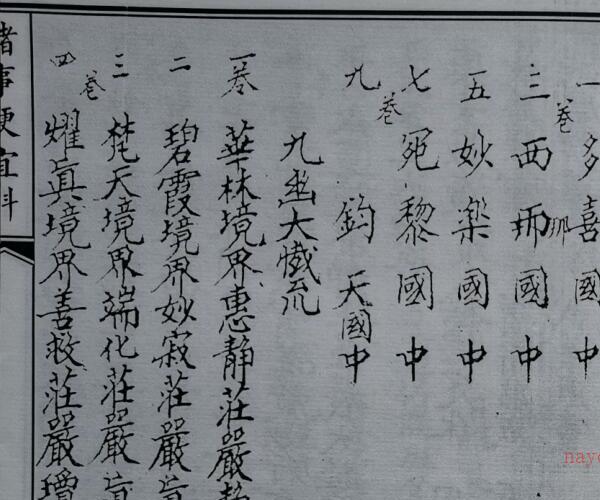 一卷多喜國中
三西𨙻那國中
五妙楽國中
七卷宛黎國中
九鈞天國中
九幽大懺流
一卷華林境界惠静荘嚴
二碧霞境界妙寂荘嚴真
三卷梵天境界端化荘嚴真
四耀真境界善救荘嚴
諸事便宜科